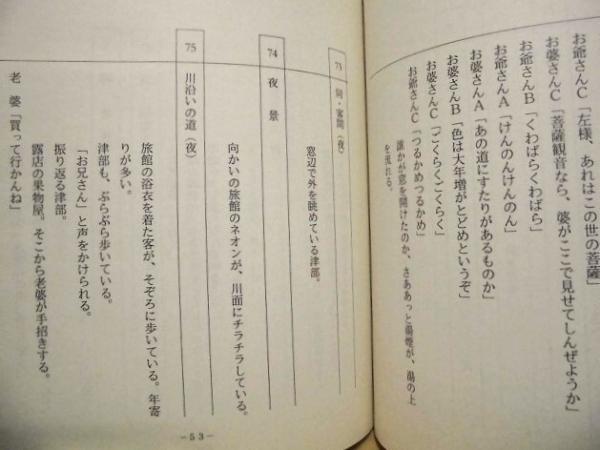 お爺さんC「左様、あれはこの世の菩薩」
お婆さんC「菩薩観音なら、婆がここで見せてしんぜようか」
お爺さんB「くわばらくわばら」
お爺さんA「けんのんけんのん」
お婆さんA「あの道にすたりがあるものか」
お婆さんB「色は大年増がとどめというぞ」
お婆さんC「ごくらくごくらく」
お爺さんC「つるかめつるかめ」
誰かが窓を開けたのか、さああっと湯煙が、湯の上
を流れる。
73 同・客間（夜）
窓辺で外を眺めている津部。
74 夜景
向かいの旅館のネオンが、川面にチラチラしている。
75 川沿いの道（夜）
旅館の浴衣を着た客が、そぞろに歩いている。年寄
りが多い。
津部も、ぶらぶら歩いている。
「お兄さん」と声をかけられる。
振り返る津部。
露店の果物屋。そこから老婆が手招きする。
老婆「買って行かんね」
－53－